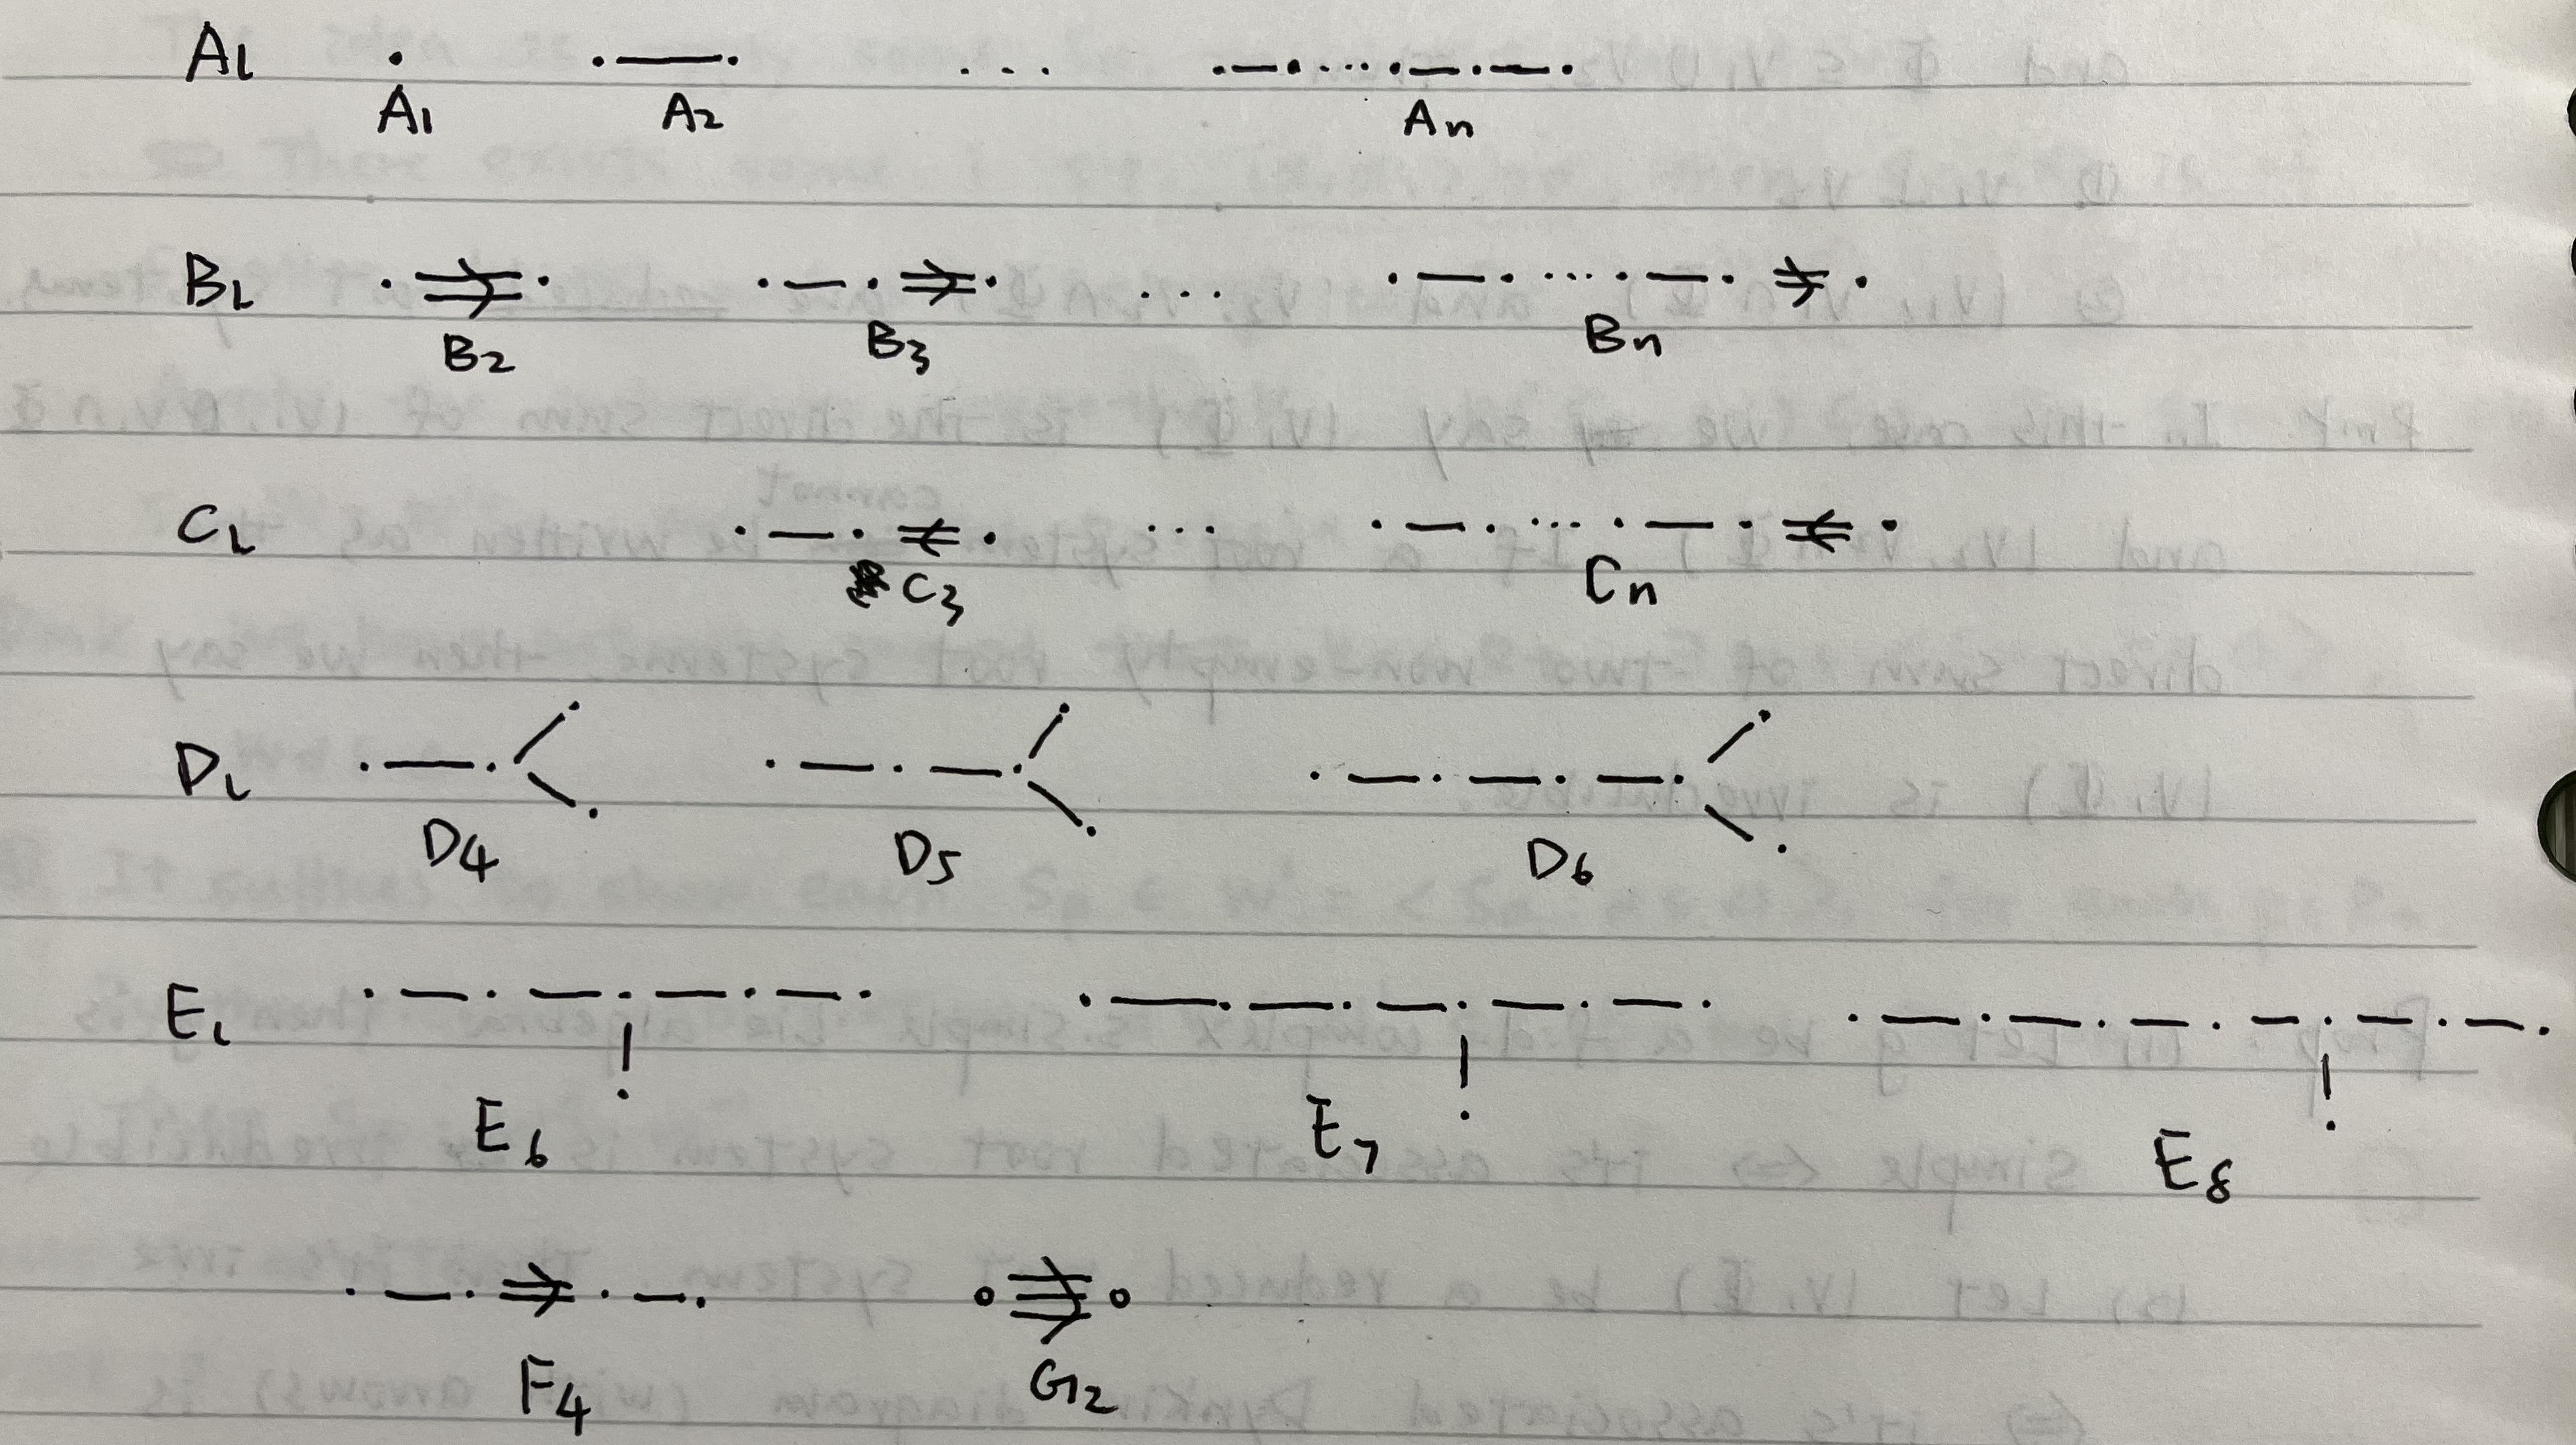 Al
A1 A2 ... An
Bl
B2 B3 ... Bn
Cl
C3 ... Cn
Dl
D4 D5 D6
El
E6 E7 E8
F4 G2